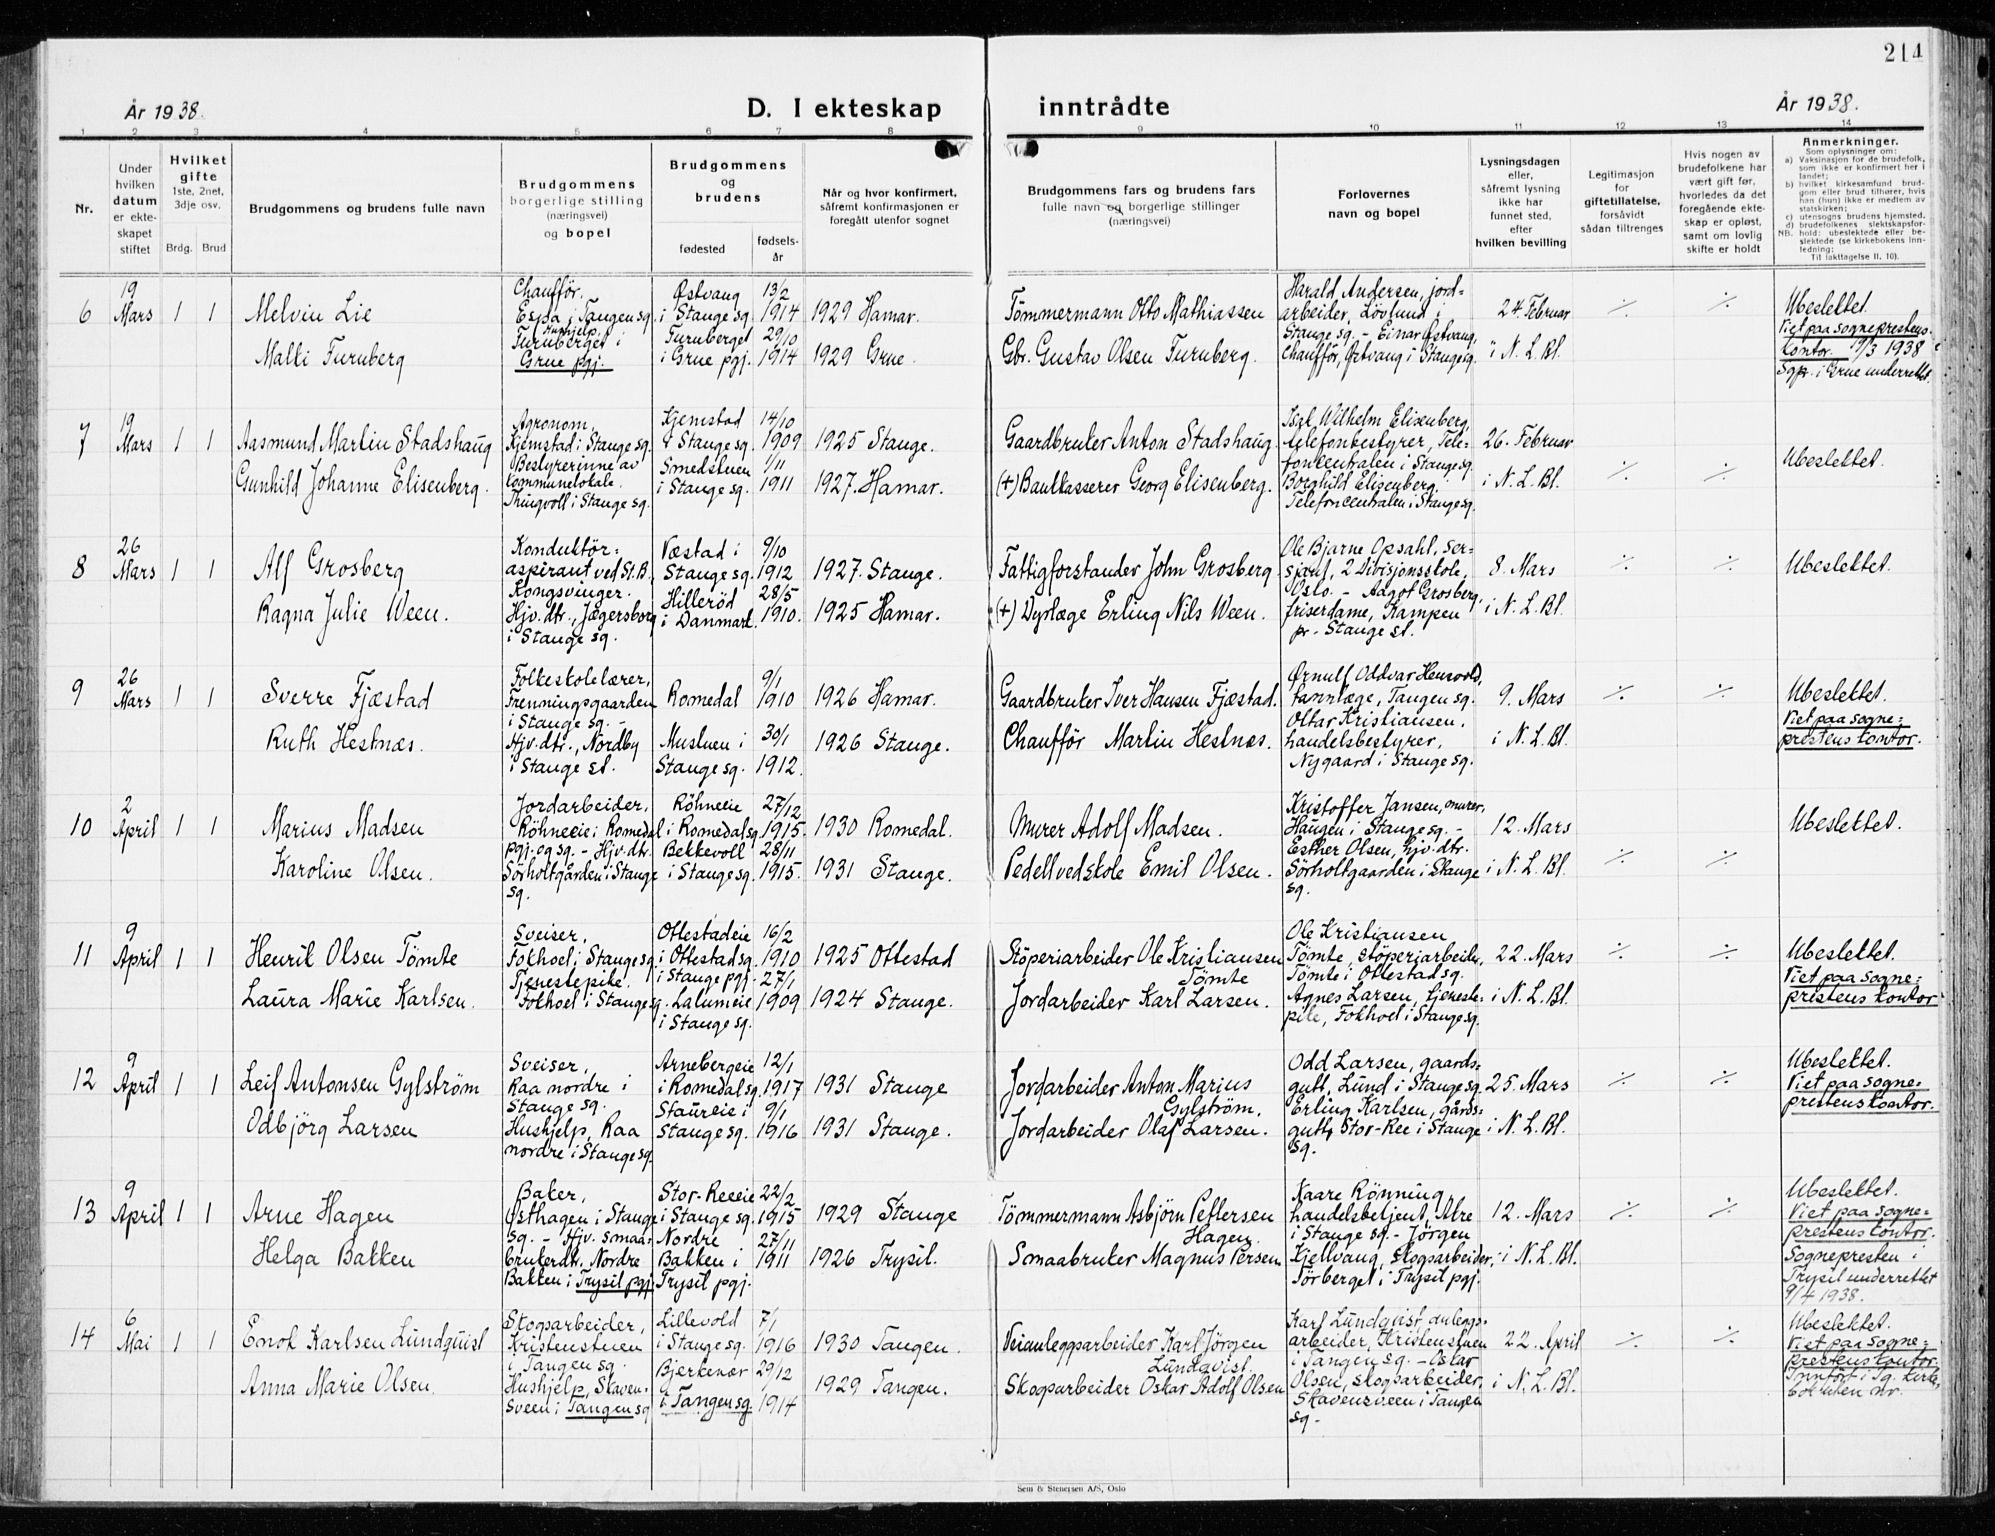 214
År 1938.
D. I ekteskap inntrådte
År 1938.
1 2 3 4 5 6 7 8 9 10 11 12 13 14
Nr.
Under
hvilken
datum
er ekte-
skapet
stiftet
Hvilket
gifte
1ste, 2net,
3dje osv.
Brdg. Brud
Brudgommens og brudens fulle navn
Brudgommens
borgerlige stilling
(næringsvei)
og bopel
Brudgommens
og
brudens
fødested
fødsels-
år
Når og hvor konfirmert,
såfremt konfirmasjonen er
foregått utenfor sognet
Brudgommens fars og brudens fars
fulle navn og borgerlige stillinger
(næringsvei)
Forlovernes
navn og bopel
Lysningsdagen
eller,
såfremt lysning
ikke har
funnet sted,
efter
hvilken bevilling
Legitimasjon
for
giftetillatelse,
forsåvidt
sådan tiltrenges
Hvis nogen av
brudefolkene har
vært gift før,
hvorledes da det
foregående ekte-
skap er opløst,
samt om lovlig
skifte er holdt
Anmerkninger.
Som oplysninger om:
a) Vaksinasjon for de brudefolk,
som ikke er konfirmert her i
landet;
b) hvilket kirkesamfund brud-
gom eller brud tilhører, hvis
han (hun) ikke er medlem av
statskirken;
c) utensogns brudens hjemsted.
d) brudefolkenes slektskapsfor-
NB. hold: ubeslektede eller be-
slektede (se kirkebokens Inn-
ledning;
Til iakttagelse II, 10).
6
19
Mars
1 1
Melvin Lie
Malli Furuberg
Chauffør.
Espa i Tangen sq.
Hushjelp,
Furuberget i
Grue pgj.
Østvang
i Stange sq.
Furuberget
i Grue pgj.
13/2
1914
29/10
1914
1929 Hamar.
1929 Grue.
Tömmermann Otto Mathiassen
Gbr. Gustav Olsen Furuberg.
Harald Andersen, jord-
arbeider, Lövlund i
Stange sq. - Einar Østvang,
Chauffør, Østvang i Stange sq.
24 Februar
i N. L. Bl.
·/· ·/·
Ubeslektet.
Viet paa sogneprestens
kontor. 19/3 1938
Sgpr. i Grue underrettet.
7
19
Mars
1 1
Aasmund Martin Stadshaug
Gunhild Johanne Elisenberg.
Agronom,
Kjemstad i Stange sq.
Bestyrerinne av
Communelokale.
Thingvoll i Stange sq.
Kjemstad
i Stange sq.
Smedstuen
i Stange sq.
14/10
1909
1/11
1911
1925 Stange.
1927. Hamar.
Gaardbruker Anton Stadshaug
(+) Bankkasserer Georg Elisenberg.
Wilhelm Elisenberg,
telefonbestyrer, Tele-
foncentralen i Stange sq.
Borghild Elisenberg.
Telefoncentralen i Stange sq.
26. Februar
i N. L. Bl.
·/· ·/·
Ubeslektet.
8
26
Mars
1 1
Alf Grosberg
Ragna Julie Ween.
Konduktör-
aspirant ved St. B.,
Kongsvinger.
Hjv. dtr., Jægersborg
i Stange sq.
Væstad i
Stange sq.
Hilleröd
i Danmark.
9/10
1912
28/5
1910.
1927. Stange.
1925 Hamar.
Fattigforstander John Grosberg.
(+) Dyrlæge Erling Nils Ween.
Ole Bjarne Opsahl, ser-
sjant, 2 Divisjonsskole,
Oslo. - Aagot Grosberg,
friserdame, Kampen
pr. Stange st.
8. Mars
i N. L. Bl.
·/· ·/·
Ubeslektet.
9
26
Mars
1 1
Sverre Fjæstad
Ruth Hestnæs.
Folkeskolelærer,
Frenningsgaarden
i Stange sq. -
Hjv. dtr., Nordby
i Stange st.
Romedal
Mustuen i
Stange sq.
9/1
1910
30/1
1912.
1926 Hamar.
1926 Stange.
Gaardbruker Iver Hansen Fjæstad.
Chauffør Martin Hestnæs.
Ørnulf Oddvar Hensvold,
tannlæge, Tangen sq.
Ottar Kristiansen,
handelsbestyrer,
Nygaard i Stange sq.
9. Mars
i N. L. Bl.
·/· ·/·
Ubeslektet.
Viet paa sogne-
prestens kontor.
10
2
April
1 1
Marius Madsen
Karoline Olsen.
Jordarbeider,
Röhneeie i Romedal
pgj. og sq. - Hjv. dtr.
Sörholtgården i Stange
sq.
Röhneeie
i Romedal sq.
Bekkevoll
i Stange sq.
27/12
1915.
28/11
1915.
1930 Romedal.
1931 Stange.
Murer Adolf Madsen.
Pedell ved skole Emil Olsen.
Kristoffer Jansen, murer,
Haugen i Stange sq. -
Esther Olsen, hjv. dtr.
Sörholtgaarden i Stange
sq.
12. Mars
i N. L. Bl.
·/· ·/·
Ubeslektet.
11
9
April
1 1
Henrik Olsen Tömte
Laura Marie Karlsen.
Sveiser,
Fokhoel i Stange sq.
Tjenestepike.
Fokhoel i Stange sq.
Ottestadeie
i Ottestad sq.
i Stange pgj.
Lalumeie
i Stange sq.
16/2
1910
27/1
1909
1925 Ottestad
1924 Stange.
Stöperiarbeider Ole Kristiansen
Tömte
Jordarbeider Karl Larsen.
Ole Kristiansen
Tömte, stöperiarbeider,
Tömte i Ottestad sq.
Agnes Larsen, tjeneste-
pike, Fokhoel i Stange sq.
22. Mars
i N. L. Bl.
·/· ·/·
Ubeslektet.
Viet paa sogne-
prestens kontor
12
9
April
1 1
Leif Antonsen Gylström
Odbjörg Larsen
Sveiser,
Raa nordre i
Stange sq.
Hushjelp, Raa
nordre i Stange sq.
Arnebergeie
i Romedal sq.
Staureie i
Stange sq.
12/1
1917
9/1
1916
1931 Stange
1931 Stange.
Jordarbeider Anton Marius
Gylström.
Jordarbeider Olaf Larsen.
Odd Larsen, gaards-
gutt, Lund i Stange sq.
Erling Karlsen, gårds-
gutt, Stor-Ree i Stange
sq.
25. Mars
i N. L. Bl.
·/· ·/·
Ubeslektet.
Viet paa sogne-
prestens kontor.
13
9
April
1 1
Arne Hagen
Helga Bakken
Baker,
Østhagen i Stange
sq. - Hjv. smaa-
brukerdt. Nordre
Bakken i Trysil pgj.
Stor-Reeeie
i Stange sq.
Nordre
Bakken i
Trysil pgj.
22/2
1915
27/11
1911
1929 Stange
1926 Trysil.
Tömmermann Asbjörn Pettersen
Hagen.
Smaabruker Magnus Persen
Kaare Rönning
handelsbetjent, Atre
i Stange sq. - Jörgen
Kjellvang, skogsarbeider,
Törberget i Trysil pgj.
12. Mars
i N. L. Bl.
·/· ·/·
Ubeslektet.
Viet paa sogne-
prestens kontor.
Sognepresten i
Trysil underrettet
9/4 1938.
14
6
Mai
1 1
Enok Karlsen Lundquist
Anna Marie Olsen
Skogsarbeider,
Kristenstuen
i Tangen sq.
Hushjelp, Skaven-
sveen i Tangen sq
Lillevold
i Stange sq.
Bjerkenær
i Tangen sq.
7/1
1916
29/12
1914
1930 Tangen.
1929 Tangen.
Veianleggsarbeider Karl Jörgen
Lundqvist.
Skogsarbeider Oskar Adolf Olsen
Karl Lundqvist, anleggs-
arbeider, Kristenstuen
i Tangen sq. - Oskar
Olsen, skogsarbeider,
Skavensveen i Tangen
sq.
22. April
i N. L. Bl.
·/· ·/·
Ubeslektet.
Viet paa sogne-
prestens kontor.
Innfört i Tg. kirke-
boken nr.
Sem & Stenersen A/S, Oslo